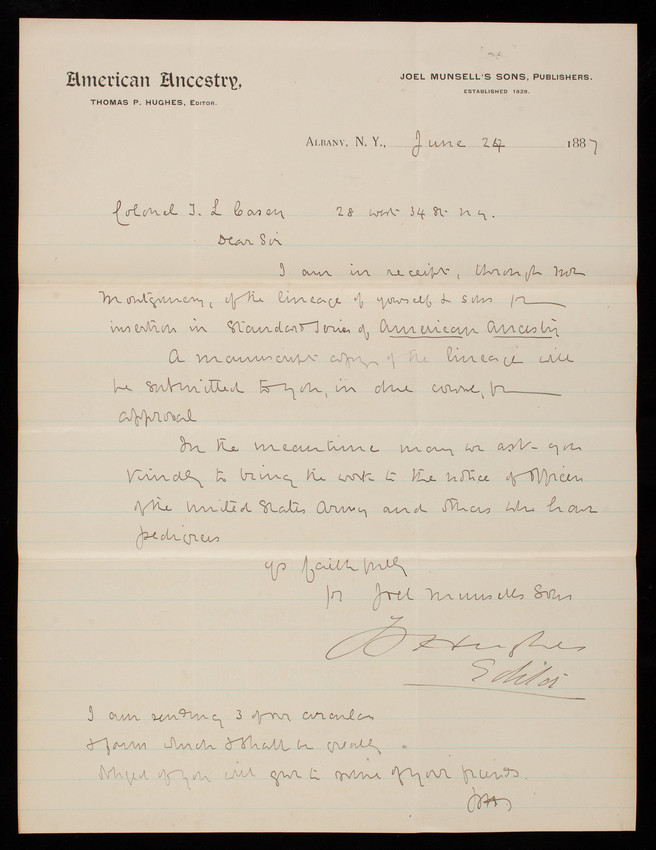 American Ancestry,
THOMAS P. HUGHES, EDITOR.
JOEL MUNSELL'S SONS, PUBLISHERS.
ESTABLISHED 1828.
ALBANY, N. Y., June 24 1887
Colonel T. L Casey 28 west 34 St N.Y.
Dear Sir
I am in receipt, through
Montgomery, of the lineage of yourself & sons for
insertion in Standard Series of American Ancestry
A manuscript copy of the lineage will
be submitted to you, in due course, for
approval
In the meantime may we ask you
kindly to bring the work to the notice of officers
of the United States Army and others who have
pedigrees
yrs faithfully
pr Joel Munsells Sons
T P Hughes
Editor
I am sending 3 of our circulars
& forms which I shall be greatly
obliged if you will give to some of your friends.